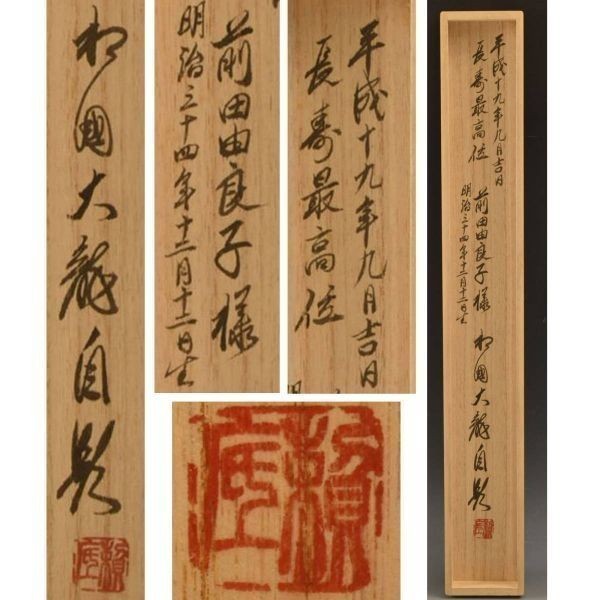 平成十九年九月吉日
長寿最高位
前田由良子様
明治三十四年十二月十二日生
相国大龍自題
平成十九年九月吉日
長寿最高位
前田由良子様
明治三十四年十二月十二日生
相国大龍自題